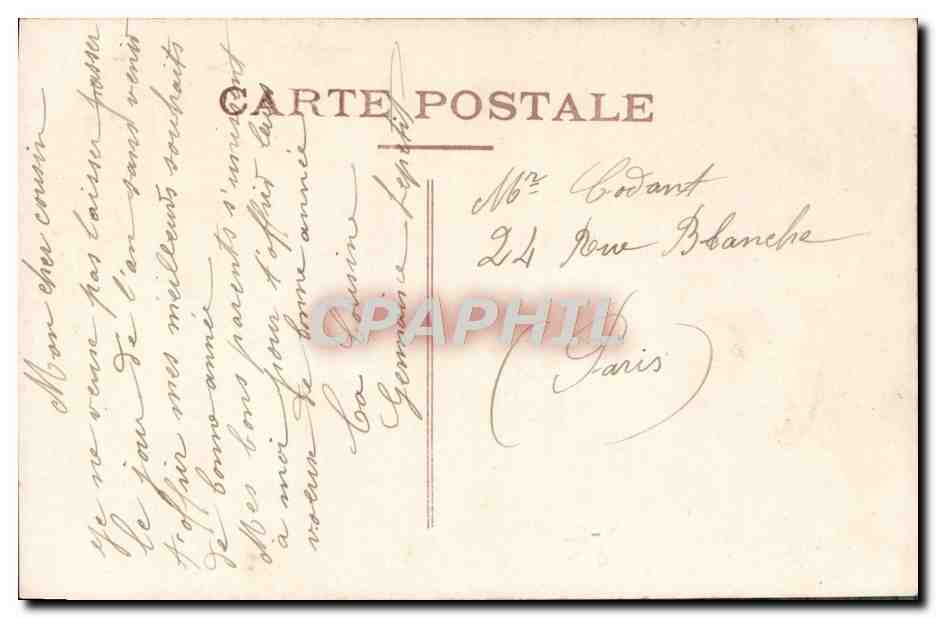 CARTE POSTALE
Mon cher cousin
Je ne veuse pas laisser passer
le jour de l'an sans venir
t'offrir mes meilleurs souhaits
de bonne année
Mes bons parents s'unissent
à moi pour t'offrir leurs
voeuse de bonne année
Ta Cousine
Germaine Lepetit
Mr Codant
24 Rue Blanche
(Paris)
CPAPHIL